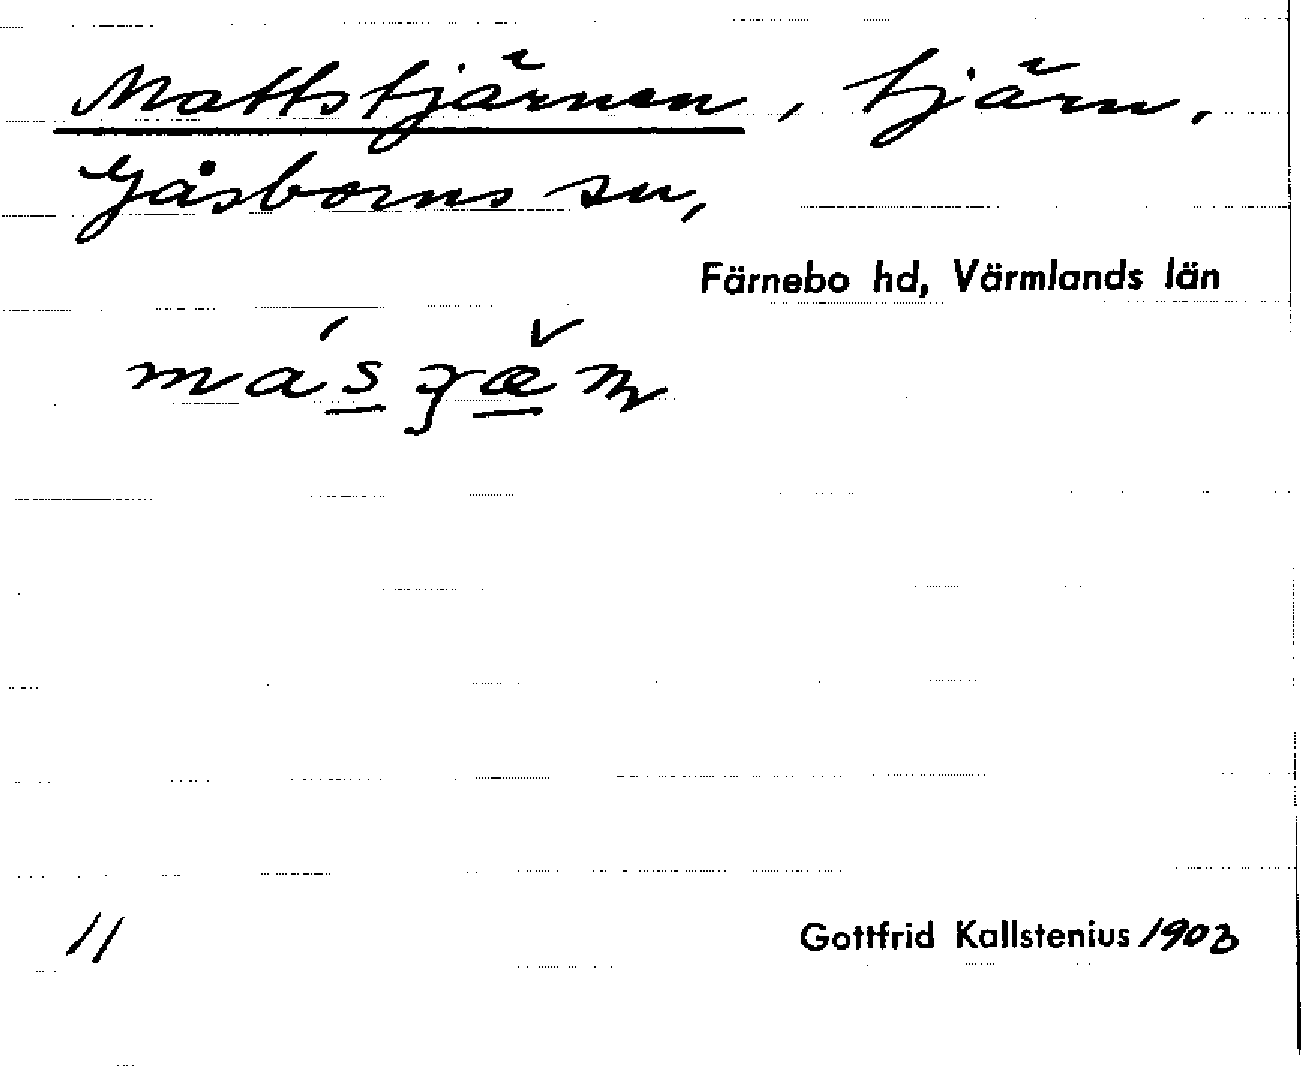 Mattstjärnen, tjärn.
Gåsborns sn,
Färnebo hd, Värmlands län
11
Gottfrid Kallstenius 1903